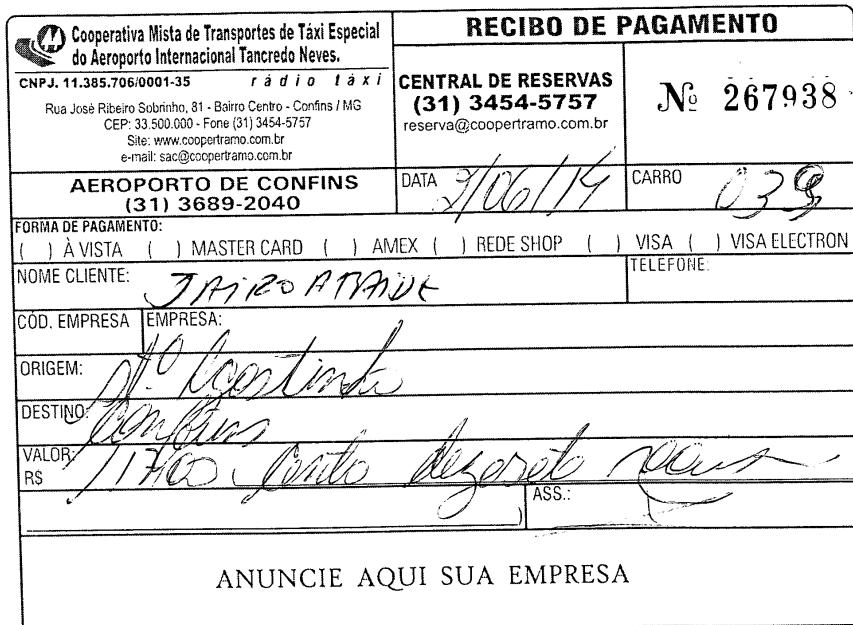 Cooperativa Mista de Transportes de Táxi Especial
do Aeroporto Internacional Tancredo Neves.
CNPJ. 11.385.706/0001-35 rádio táxi
Rua José Ribeiro Sobrinho, 81 - Bairro Centro - Confins / MG
CEP: 33.500.000 - Fone (31) 3454-5757
Site: www.coopertramo.com.br
e-mail: sac@coopertramo.com.br
RECIBO DE PAGAMENTO
CENTRAL DE RESERVAS
(31) 3454-5757
reserva@coopertramo.com.br
Nº 267938
AEROPORTO DE CONFINS
(31) 3689-2040
DATA 2/06/14
CARRO 039
FORMA DE PAGAMENTO:
( ) À VISTA ( ) MASTER CARD ( ) AMEX ( ) REDE SHOP ( ) VISA ( ) VISA ELECTRON
NOME CLIENTE: JAIRO ATAIDE
TELEFONE:
CÓD. EMPRESA EMPRESA:
ORIGEM: Stº Agostinho
DESTINO: Confins
VALOR: R$ 117,00 Cento dezesete reais
ASS.:
ANUNCIE AQUI SUA EMPRESA